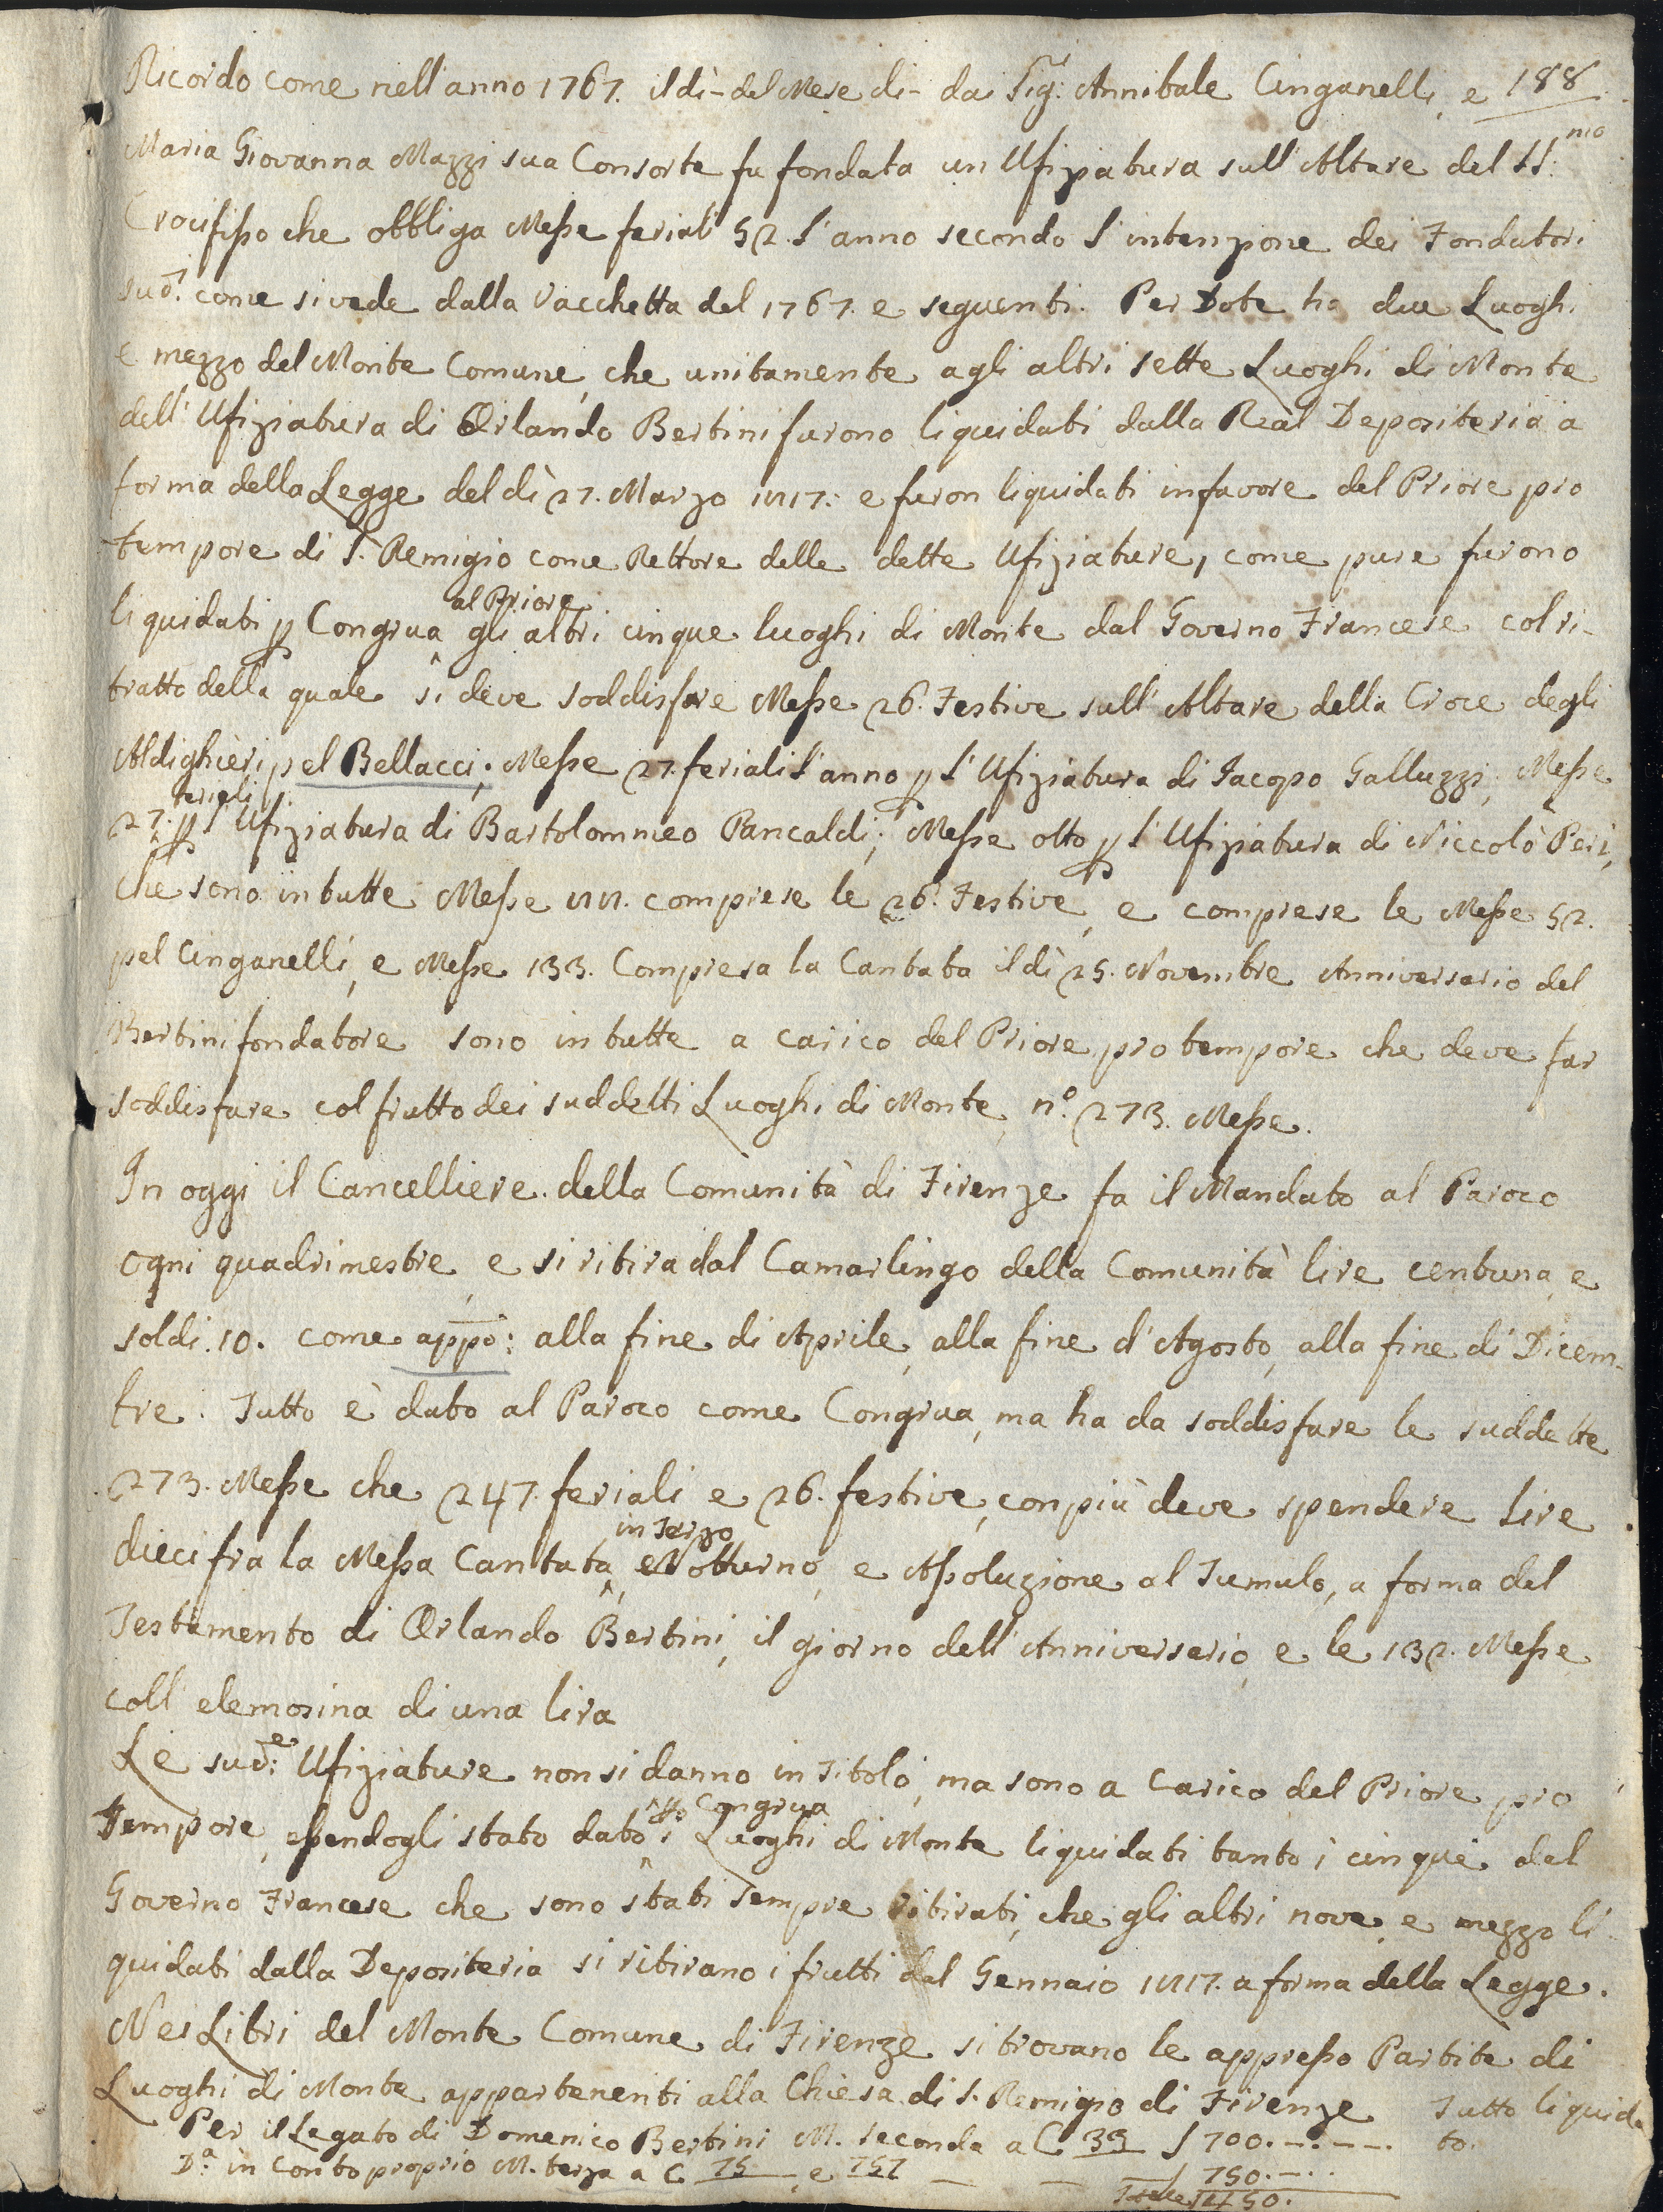 Ricordo come nell'anno 1767. il dì - del Mese di - dai Sig:ri Annibale Cinganelli, e 188
Maria Giovanna Mazzi sua Consorte fu fondata un Ufiziatura sull'Altare del SS:mo
Crocifisso che obbliga Messe feriali 52. l'anno secondo l'intenzione dei Fondatori
sud:i come si vede dalla Vacchetta del 1767. e seguenti. Per Dote ha due Luoghi
e mezzo del Monte Comune, che unitamente agli altri sette Luoghi di Monte
dell'Ufiziatura di Orlando Bertini furono liquidati dalla Real Depositeria a
forma della Legge del dì 27. Marzo 1817: e furon liquidati in favore del Priore pro
tempore di S. Remigio come Rettore delle dette Ufiziature, come pure furono
liquidati p Congrua al Priore gli altri cinque luoghi di Monte dal Governo Francese col ri-
tratto della quale si deve soddisfare Messe 26. Festive sull'Altare della Croce degli
Aldighieri pel Bellacci; Messe 27. feriali l'anno p l'Ufiziatura di Jacopo Galluzzi, Messe
27. feriali p l'Ufiziatura di Bartolommeo Pancaldi; Messe otto p l'Ufiziatura di Niccolò Peri,
che sono in tutte Messe 88. comprese le 26. Festive, e comprese le Messe 52.
pel Cinganelli, e Messe 133. Compresa la Cantata il dì 25. Novembre Anniversario del
Bertini fondatore sono in tutte a carico del Priore pro tempore che deve far
soddisfare col frutto dei suddetti Luoghi di Monte, n.º 273. Messe.
In oggi il Cancelliere della Comunità di Firenze fa il Mandato al Paroco
ogni quadrimestre, e si ritira dal Camarlingo della Comunità lire centuna, e
soldi. 10. come appo: alla fine di Aprile, alla fine d'Agosto, alla fine di Dicem-
bre. Tutto è dato al Paroco come Congrua, ma ha da soddisfare le suddette
273. Messe che 247. feriali e 26. festive, con più deve spendere lire
dieci fra la Messa Cantata, in Terzo e Notturno, e Assoluzione al Tumulo, a forma del
Testamento di Orlando Bertini, il giorno dell'Anniversario, e le 132. Messe
coll'elemosina di una lira
Le sud:e Ufiziature non si danno in Titolo, ma sono a Carico del Priore pro
Tempore, essendogli stato dato p Congrua i Luoghi di Monte liquidati tanto i cinque dal
Governo Francese che sono stati sempre ritirati, che gli altri nove, e mezzo li-
quidati dalla Depositeria si ritirano i frutti dal Gennaio 1817. a forma della Legge.
Nei Libri del Monte Comune di Firenze si trovano le appresso Partite di
Luoghi di Monte appartenenti alla Chiesa di S. Remigio di Firenze Tutto liquida
Per il Legato di Domenico Bertini M. seconda a C 39 ʃ 700. to.
D.a in Conto proprio M. terza a C 75 e 757 ʃ 750.
1450.